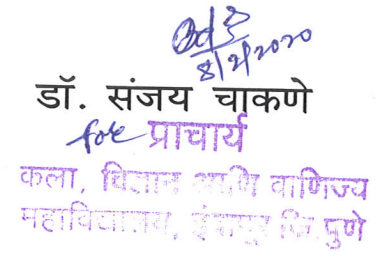 8/2/2020
डॉ. संजय चाकणे
for प्राचार्य
कला, विज्ञान आणि वाणिज्य
महाविद्यालय, इंदापूर जि.पुणे